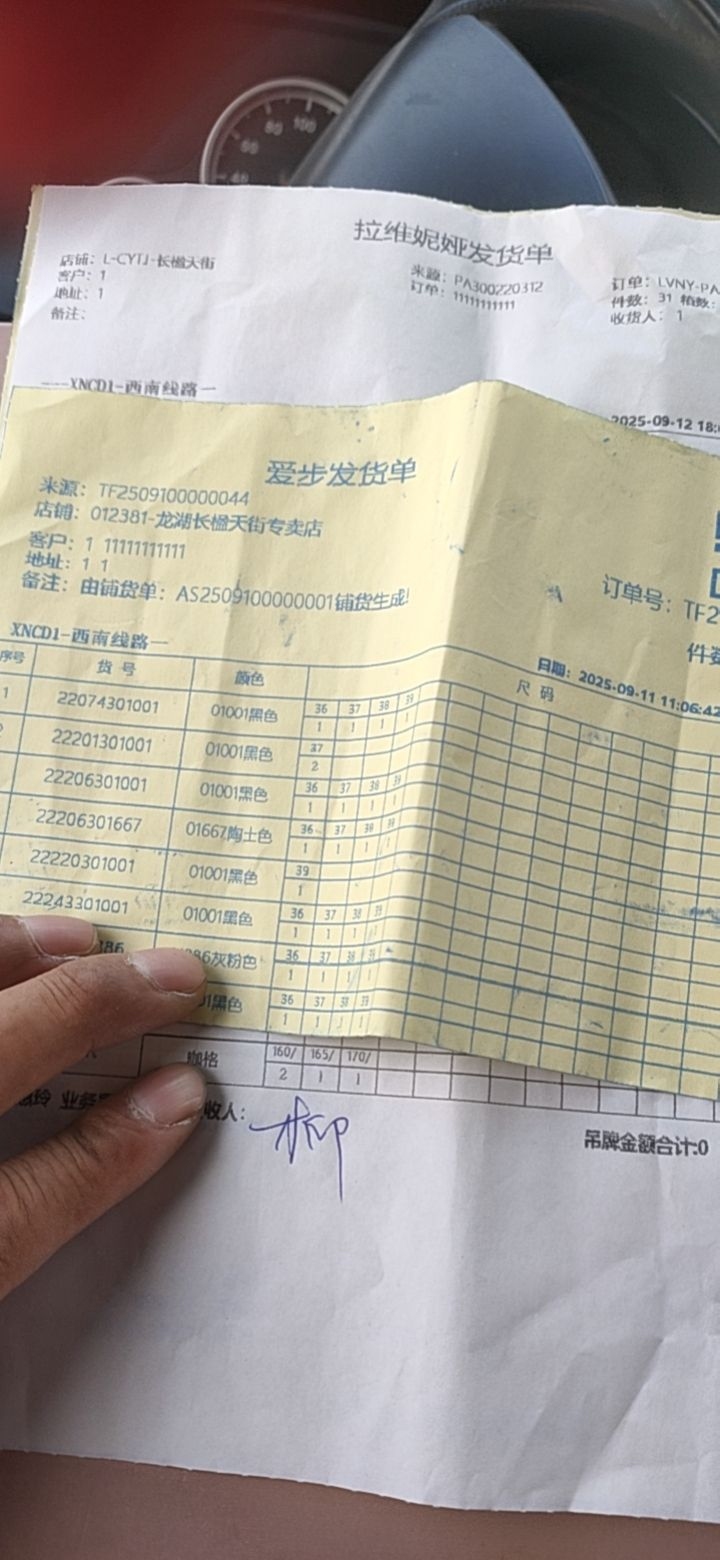 80 100
60
40
拉维妮娅发货单
店铺：L-CYTJ-长楹天街
来源：PA300220312
订单：LVNY-PA
客户：1
订单：11111111111
件数：31 箱数：
地址：1
收货人：1
备注：
----XNCD1-西南线路一
2025-09-12 18:
爱步发货单
来源：TF2509100000044
店铺：012381-龙湖长楹天街专卖店
客户：1 11111111111
地址：1 1
订单号：TF2
备注：由铺货单：AS2509100000001铺货生成!
件数
XNCD1-西南线路一
日期：2025-09-11 11:06:42
序号 货号 颜色 尺码
1 22074301001 01001黑色 36 37 38 39
1 1 1 1
22201301001 01001黑色 37
2
22206301001 01001黑色 36 37 38 39
1 1 1 1
22206301667 01667陶土色 36 37 38 39
1 1 1 1
22220301001 01001黑色 39
1
22243301001 01001黑色 36 37 38 39
1 1 1 1
386 386灰粉色 36 37 38 39
1 1 1 1
01黑色 36 37 38 39
1 1 1 1
咖格 160/ 165/ 170/
2 1 1
玲 业务员
收人：
吊牌金额合计:0